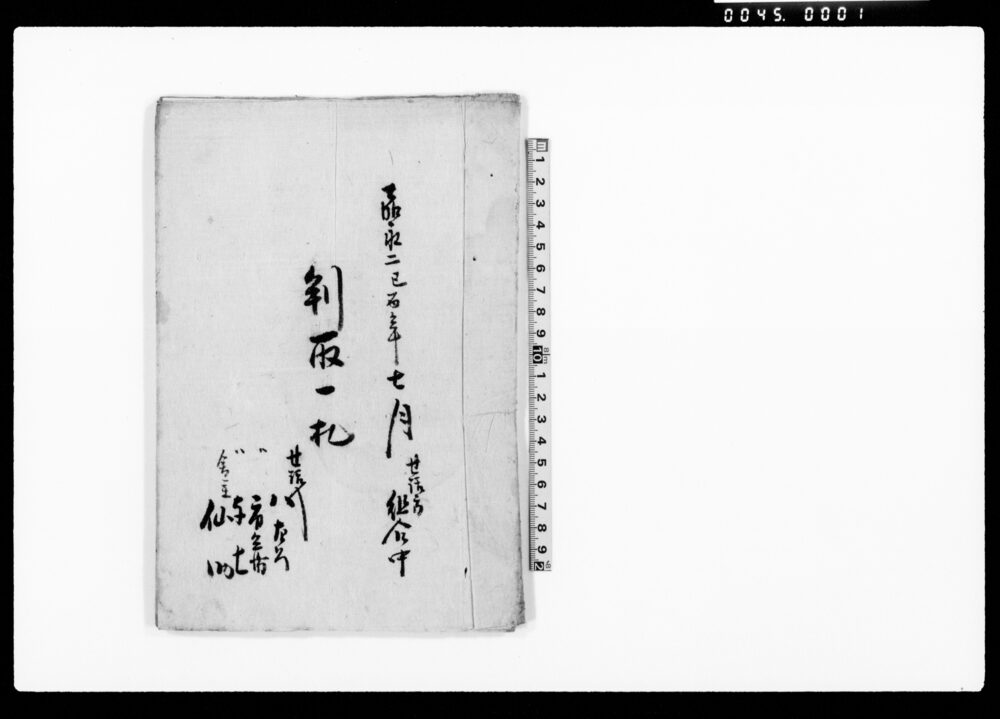 0045. 0001
嘉永二己酉年七月
世話方
組合中
判取一札
世話人
八右衛門
〃
〃
寺七
金主
仙助